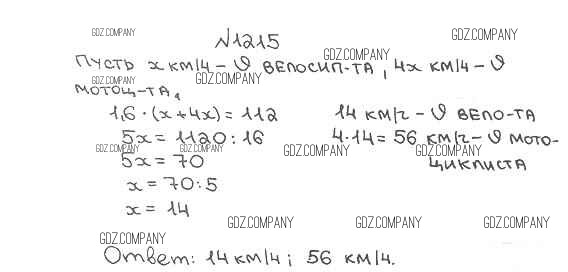 GDZ.COMPANY GDZ.COMPANY
№1215
GDZ.COMPANY
Пусть x км/ч – υ велосип-та, 4x км/ч – υ
GDZ.COMPANY GDZ.COMPANY
мотоц-та,
1,6 · (x + 4x) = 112 14 км/ч – υ вело-та
5x = 1120 : 16 4·14 = 56 км/ч – υ мото-
GDZ.COMPANY GDZ.COMPANY GDZ.COMPANY GDZ.COMPANY
5x = 70 циклиста
x = 70 : 5
x = 14
GDZ.COMPANY GDZ.COMPANY GDZ.COMPANY
GDZ.COMPANY
Ответ: 14 км/ч; 56 км/ч.